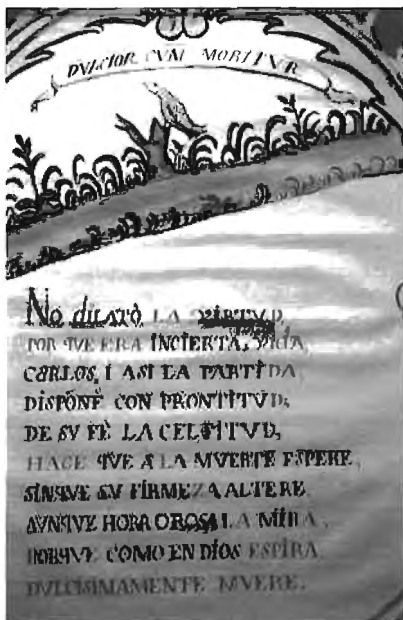 DVLCIOR CVM MORITVR
No LA VIRTVD,
POR QVE ERA INCIERTA,
CARLOS, I ASI LA PARTIDA
DISPONE CON PRONTITVD;
DE SV FÈ LA CELSITVD,
HACE QVE A LA MVERTE ESPERE,
SINQVE SV FIRMEZA ALTERE
AVNQVE HORROROSA LA MIRA,
PORQVE COMO EN DIOS ESPIRA
DVLCISIMAMENTE MVERE.